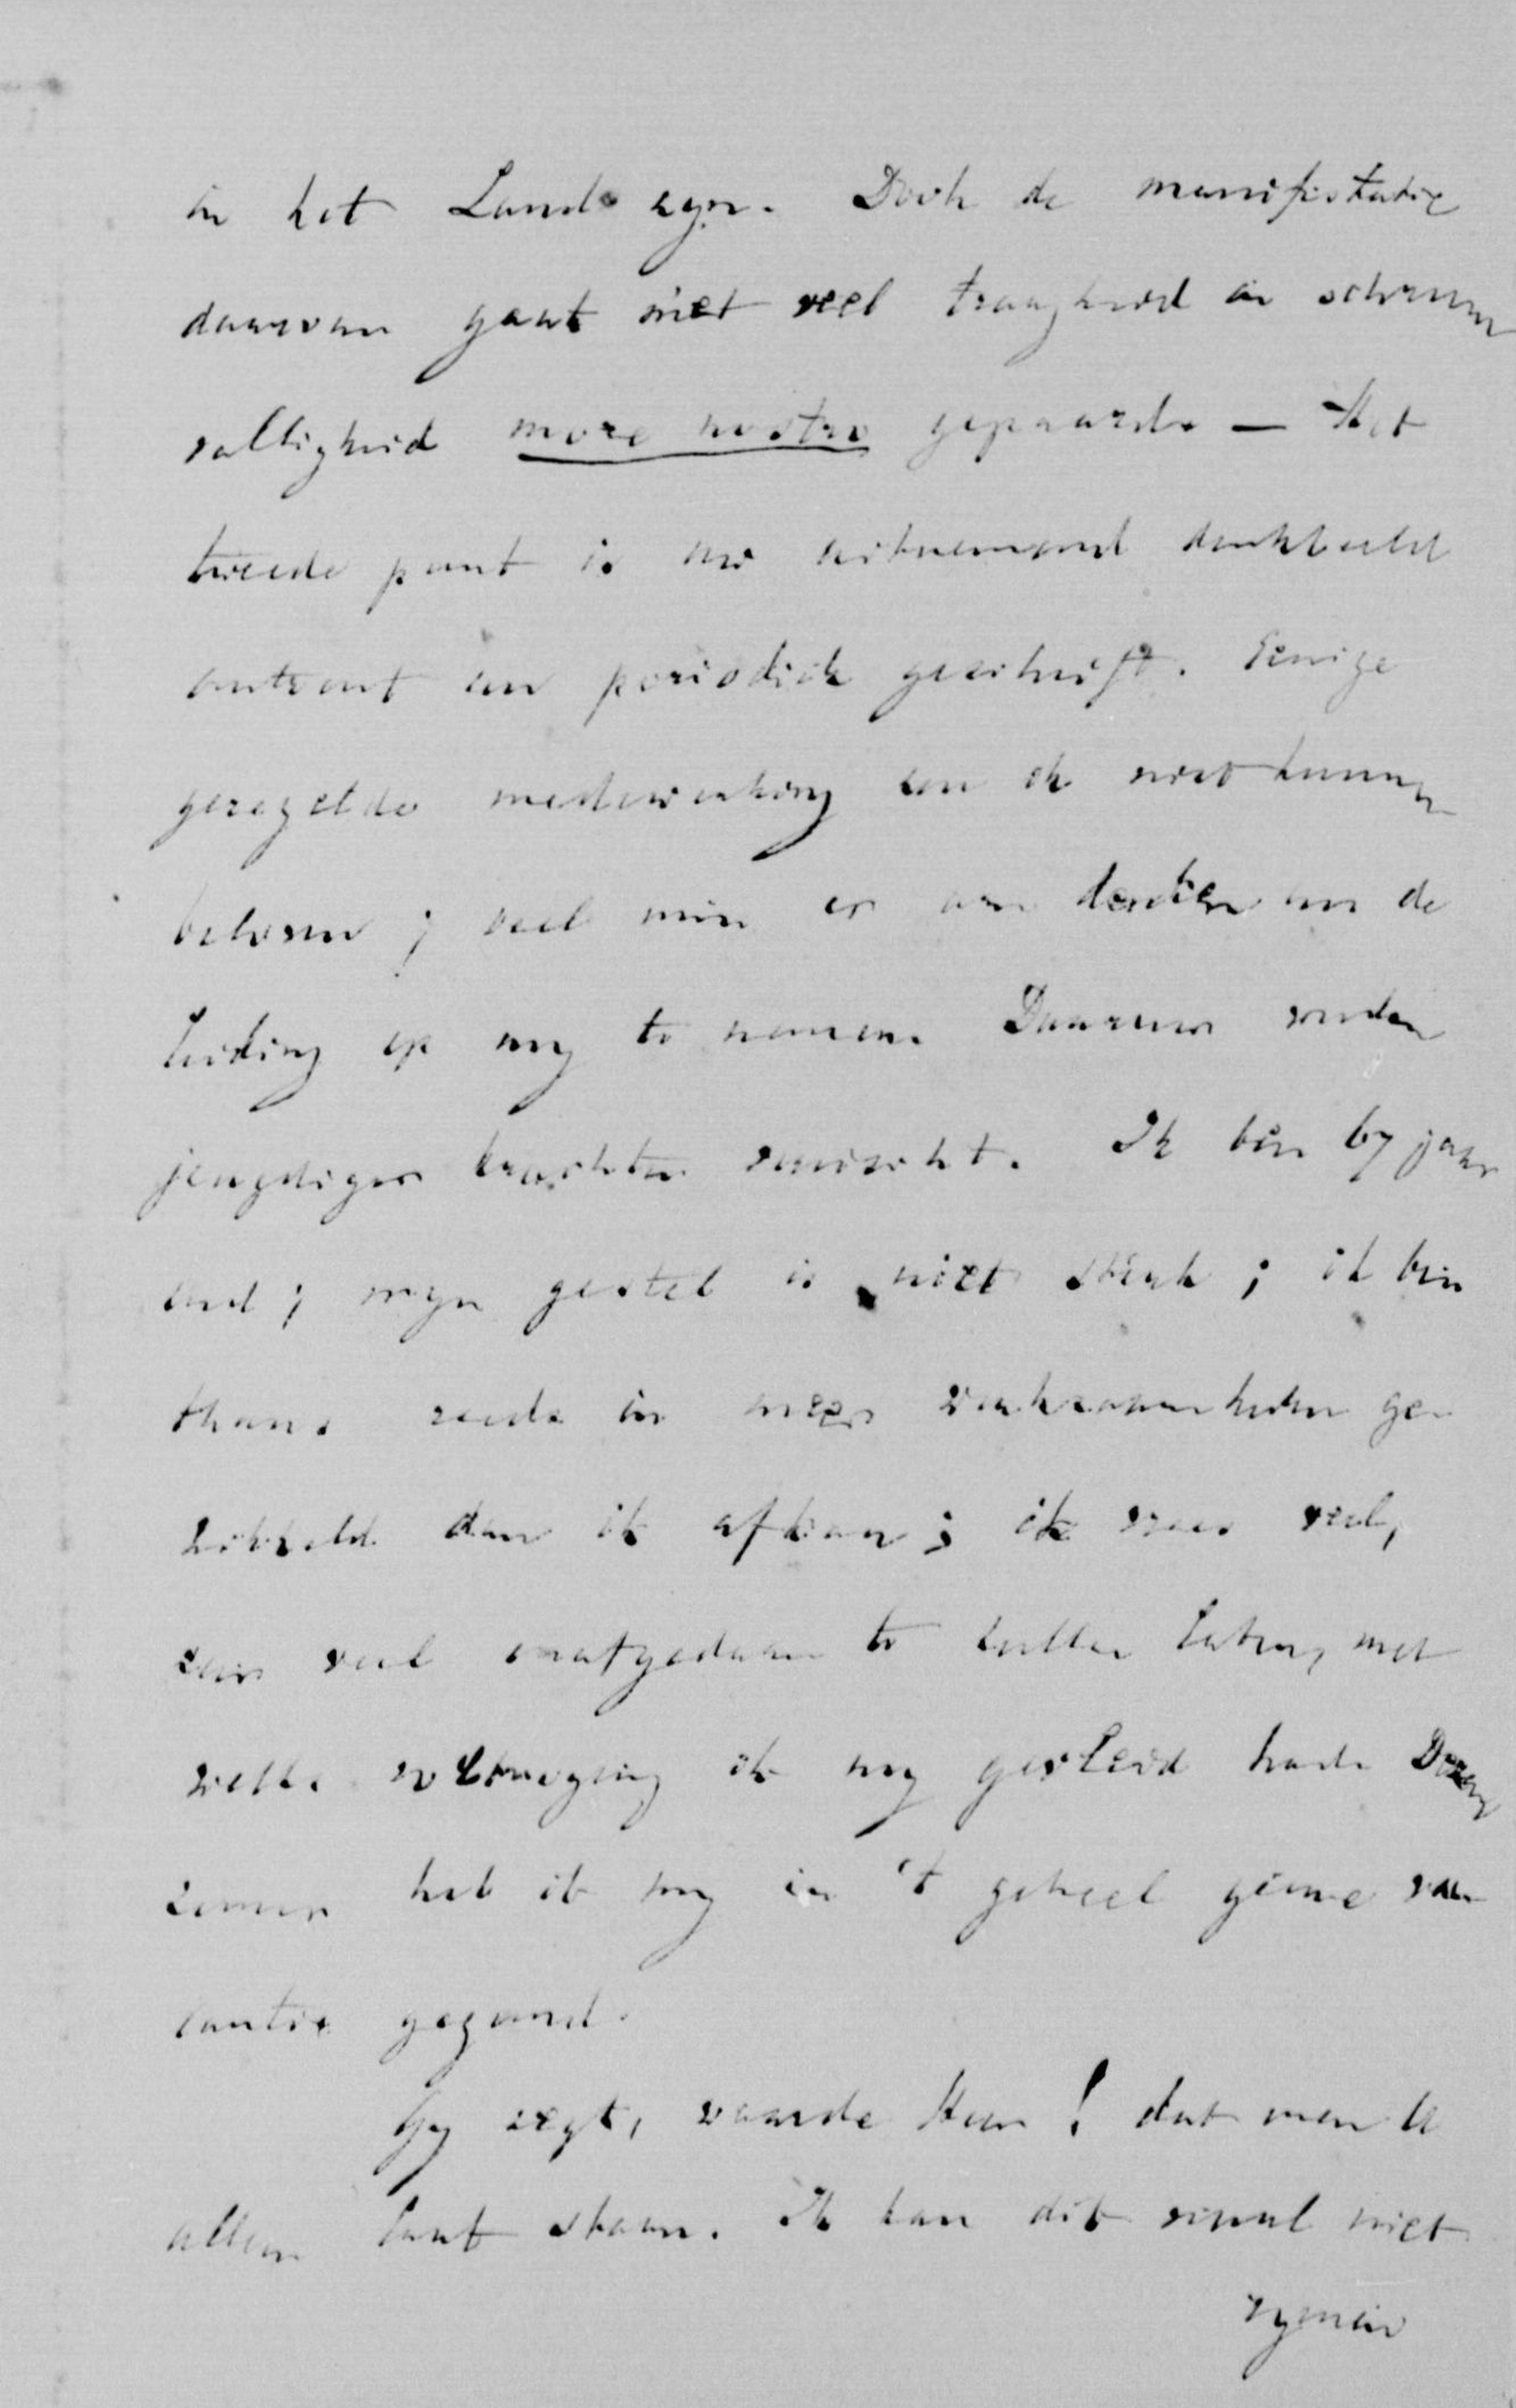 in het Land zyn. Doch de manifestatie
daarvan gaat met veel traagheid en schroom
valligheid more nostro gepaard. — Het
tweede punt is uw uitnemend denkbeeld
omtrent een periodiek geschrift. Eenige
geregelde medewerking zou ik niet kunnen
beloven; veel min er aan denken om de
leiding op my te nemen. Daartoe worden
jeugdiger krachten vereischt. Ik ben 67 jaar
oud; myn gestel is niet sterk; ik ben
thans reeds in meer werkzaamheden ge
wikkeld dan ik afkan; ik vrees veel,
zeer veel onafgedaan te zullen laten, met
welks volbrenging ik my gevleid had. Dezen
zomer heb ik my in 't geheel geene va
cantie gegund.
Gy zegt, waarde Heer! dat men U
alleen laat staan. Ik kan dit reeml niet
rymen